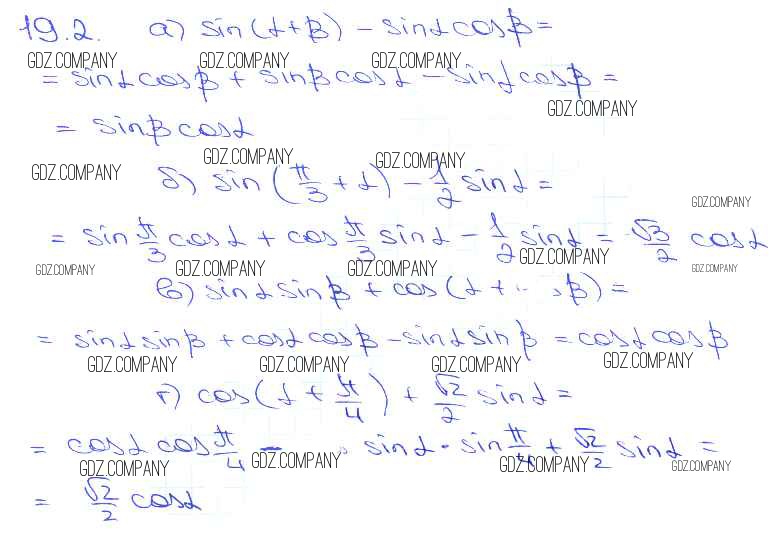 19.2. а) sin(α+β) - sinα cosβ =
GDZ.COMPANY GDZ.COMPANY GDZ.COMPANY
= sinα cosβ + sinβ cosα - sinα cosβ =
GDZ.COMPANY
= sinβ cosα
GDZ.COMPANY GDZ.COMPANY GDZ.COMPANY
б) sin(π/3 + α) - 1/2 sinα =
GDZ.COMPANY
= sin π/3 cosα + cos π/3 sinα - 1/2 sinα = √3/2 cosα
GDZ.COMPANY GDZ.COMPANY GDZ.COMPANY GDZ.COMPANY GDZ.COMPANY
в) sinα sinβ + cos(α + β) =
= sinα sinβ + cosα cosβ - sinα sinβ = cosα cosβ
GDZ.COMPANY GDZ.COMPANY GDZ.COMPANY GDZ.COMPANY
г) cos(α + π/4) + √2/2 sinα =
= cosα cos π/4 - sinα · sin π/4 + √2/2 sinα =
GDZ.COMPANY GDZ.COMPANY GDZ.COMPANY GDZ.COMPANY
= √2/2 cosα